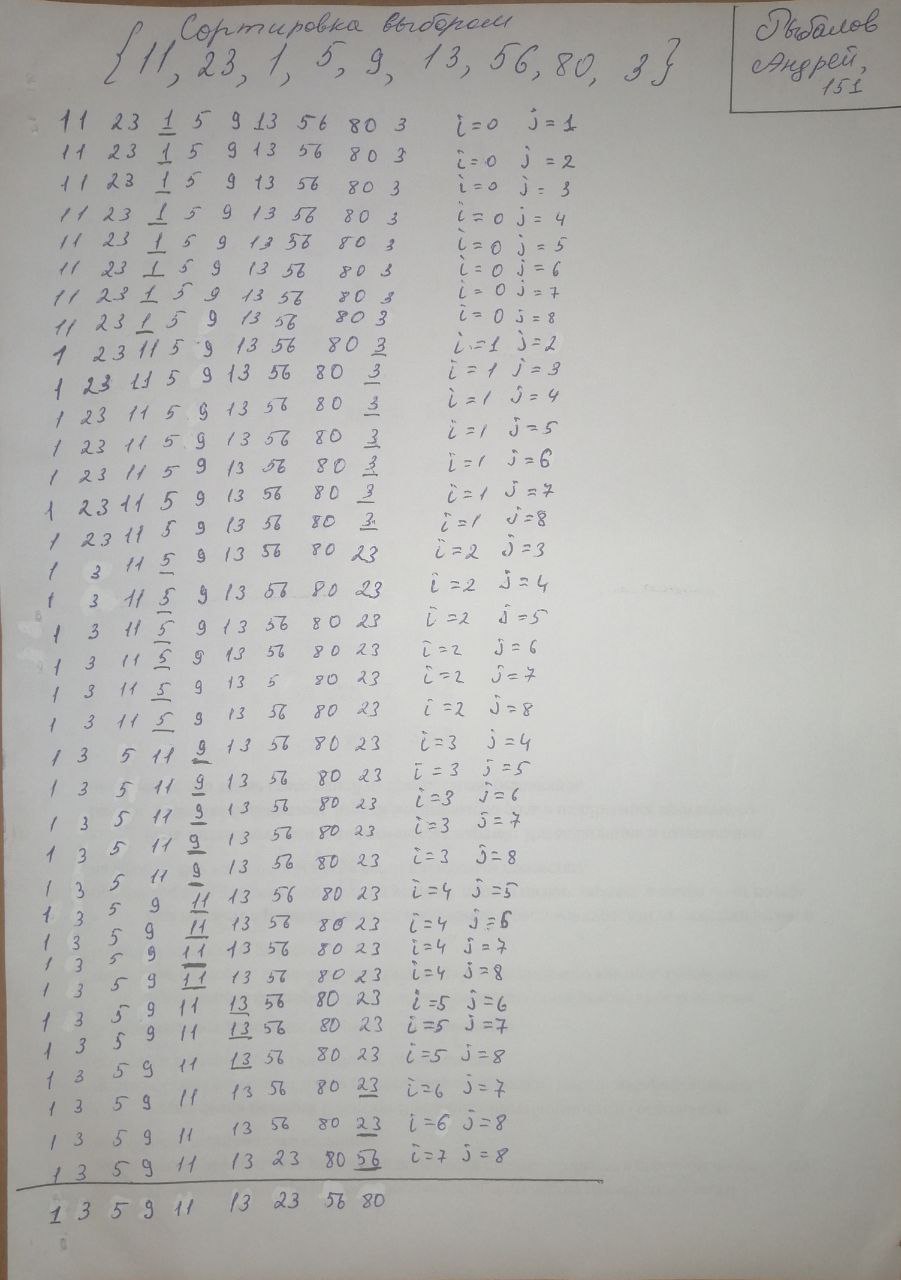 Сортировка выбором
{11, 23, 1, 5, 9, 13, 56, 80, 3}
Рыбалов
Андрей,
151
11 23 1 5 9 13 56 80 3 i=0 j=1
11 23 1 5 9 13 56 80 3 i=0 j=2
11 23 1 5 9 13 56 80 3 i=0 j=3
11 23 1 5 9 13 56 80 3 i=0 j=4
11 23 1 5 9 13 56 80 3 i=0 j=5
11 23 1 5 9 13 56 80 3 i=0 j=6
11 23 1 5 9 13 56 80 3 i=0 j=7
11 23 1 5 9 13 56 80 3 i=0 j=8
1 23 11 5 9 13 56 80 3 i=1 j=2
1 23 11 5 9 13 56 80 3 i=1 j=3
1 23 11 5 9 13 56 80 3 i=1 j=4
1 23 11 5 9 13 56 80 3 i=1 j=5
1 23 11 5 9 13 56 80 3 i=1 j=6
1 23 11 5 9 13 56 80 3 i=1 j=7
1 23 11 5 9 13 56 80 3 i=1 j=8
1 3 11 5 9 13 56 80 23 i=2 j=3
1 3 11 5 9 13 56 80 23 i=2 j=4
1 3 11 5 9 13 56 80 23 i=2 j=5
1 3 11 5 9 13 56 80 23 i=2 j=6
1 3 11 5 9 13 5 80 23 i=2 j=7
1 3 11 5 9 13 56 80 23 i=2 j=8
1 3 5 11 9 13 56 80 23 i=3 j=4
1 3 5 11 9 13 56 80 23 i=3 j=5
1 3 5 11 9 13 56 80 23 i=3 j=6
1 3 5 11 9 13 56 80 23 i=3 j=7
1 3 5 11 9 13 56 80 23 i=3 j=8
1 3 5 9 11 13 56 80 23 i=4 j=5
1 3 5 9 11 13 56 80 23 i=4 j=6
1 3 5 9 11 13 56 80 23 i=4 j=7
1 3 5 9 11 13 56 80 23 i=4 j=8
1 3 5 9 11 13 56 80 23 i=5 j=6
1 3 5 9 11 13 56 80 23 i=5 j=7
1 3 5 9 11 13 56 80 23 i=5 j=8
1 3 5 9 11 13 56 80 23 i=6 j=7
1 3 5 9 11 13 56 80 23 i=6 j=8
1 3 5 9 11 13 23 80 56 i=7 j=8
1 3 5 9 11 13 23 56 80